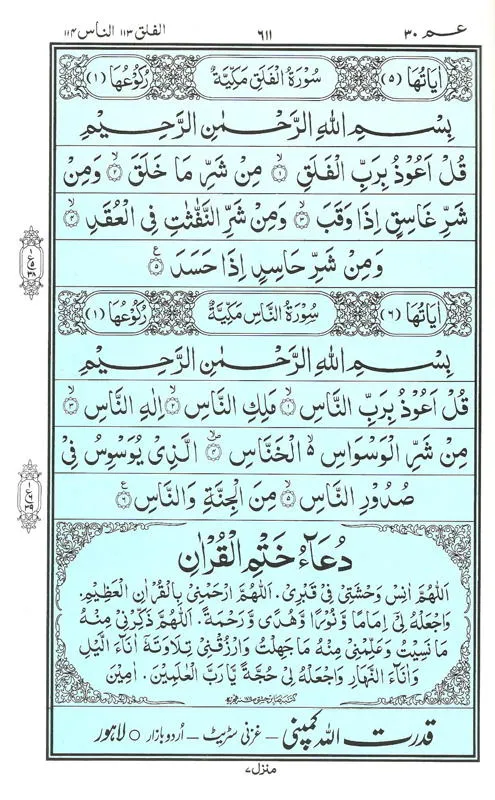 عمّ ٣٠ ٦١١ الفلق ١١٣ الناس ١١٤
اٰيَاتُهَا (٥) سُوْرَةُ الْفَلَقِ مَكِّيَّةٌ رُكُوْعُهَا (١)
بِسْمِ اللّٰهِ الرَّحْمٰنِ الرَّحِيْمِ
قُلْ اَعُوْذُ بِرَبِّ الْفَلَقِ ۙ۝١ مِنْ شَرِّ مَا خَلَقَ ۙ۝٢ وَمِنْ
شَرِّ غَاسِقٍ اِذَا وَقَبَ ۙ۝٣ وَمِنْ شَرِّ النَّفّٰثٰتِ فِى الْعُقَدِ ۙ۝٤
وَمِنْ شَرِّ حَاسِدٍ اِذَا حَسَدَ ۝٥
اٰيَاتُهَا (٦) سُوْرَةُ النَّاسِ مَكِّيَّةٌ رُكُوْعُهَا (١)
بِسْمِ اللّٰهِ الرَّحْمٰنِ الرَّحِيْمِ
قُلْ اَعُوْذُ بِرَبِّ النَّاسِ ۙ۝١ مَلِكِ النَّاسِ ۙ۝٢ اِلٰهِ النَّاسِ ۙ۝٣
مِنْ شَرِّ الْوَسْوَاسِ ۵ الْخَنَّاسِ ۝٤ الَّذِىْ يُوَسْوِسُ فِىْ
صُدُوْرِ النَّاسِ ۙ۝٥ مِنَ الْجِنَّةِ وَالنَّاسِ ۝٦
دُعَآءُ خَتْمِ الْقُرْاٰنِ
اَللّٰهُمَّ اٰنِسْ وَحْشَتِىْ فِىْ قَبْرِىْ. اَللّٰهُمَّ ارْحَمْنِىْ بِالْقُرْاٰنِ الْعَظِيْمِ.
وَاجْعَلْهُ لِىْٓ اِمَامًا وَّ نُوْرًا وَّ هُدًى وَّ رَحْمَةً. اَللّٰهُمَّ ذَكِّرْنِىْ مِنْهُ
مَا نَسِيْتُ وَعَلِّمْنِىْ مِنْهُ مَا جَهِلْتُ وَارْزُقْنِىْ تِلَاوَتَهٗ اٰنَآءَ الَّيْلِ
وَ اٰنَآءَ النَّهَارِ وَاجْعَلْهُ لِىْ حُجَّةً يَّا رَبَّ الْعٰلَمِيْنَ. اٰمِيْن
قدرت اللہ کمپنی – غزنی سٹریٹ – اُردو بازار ○ لاہور
منزل ۷